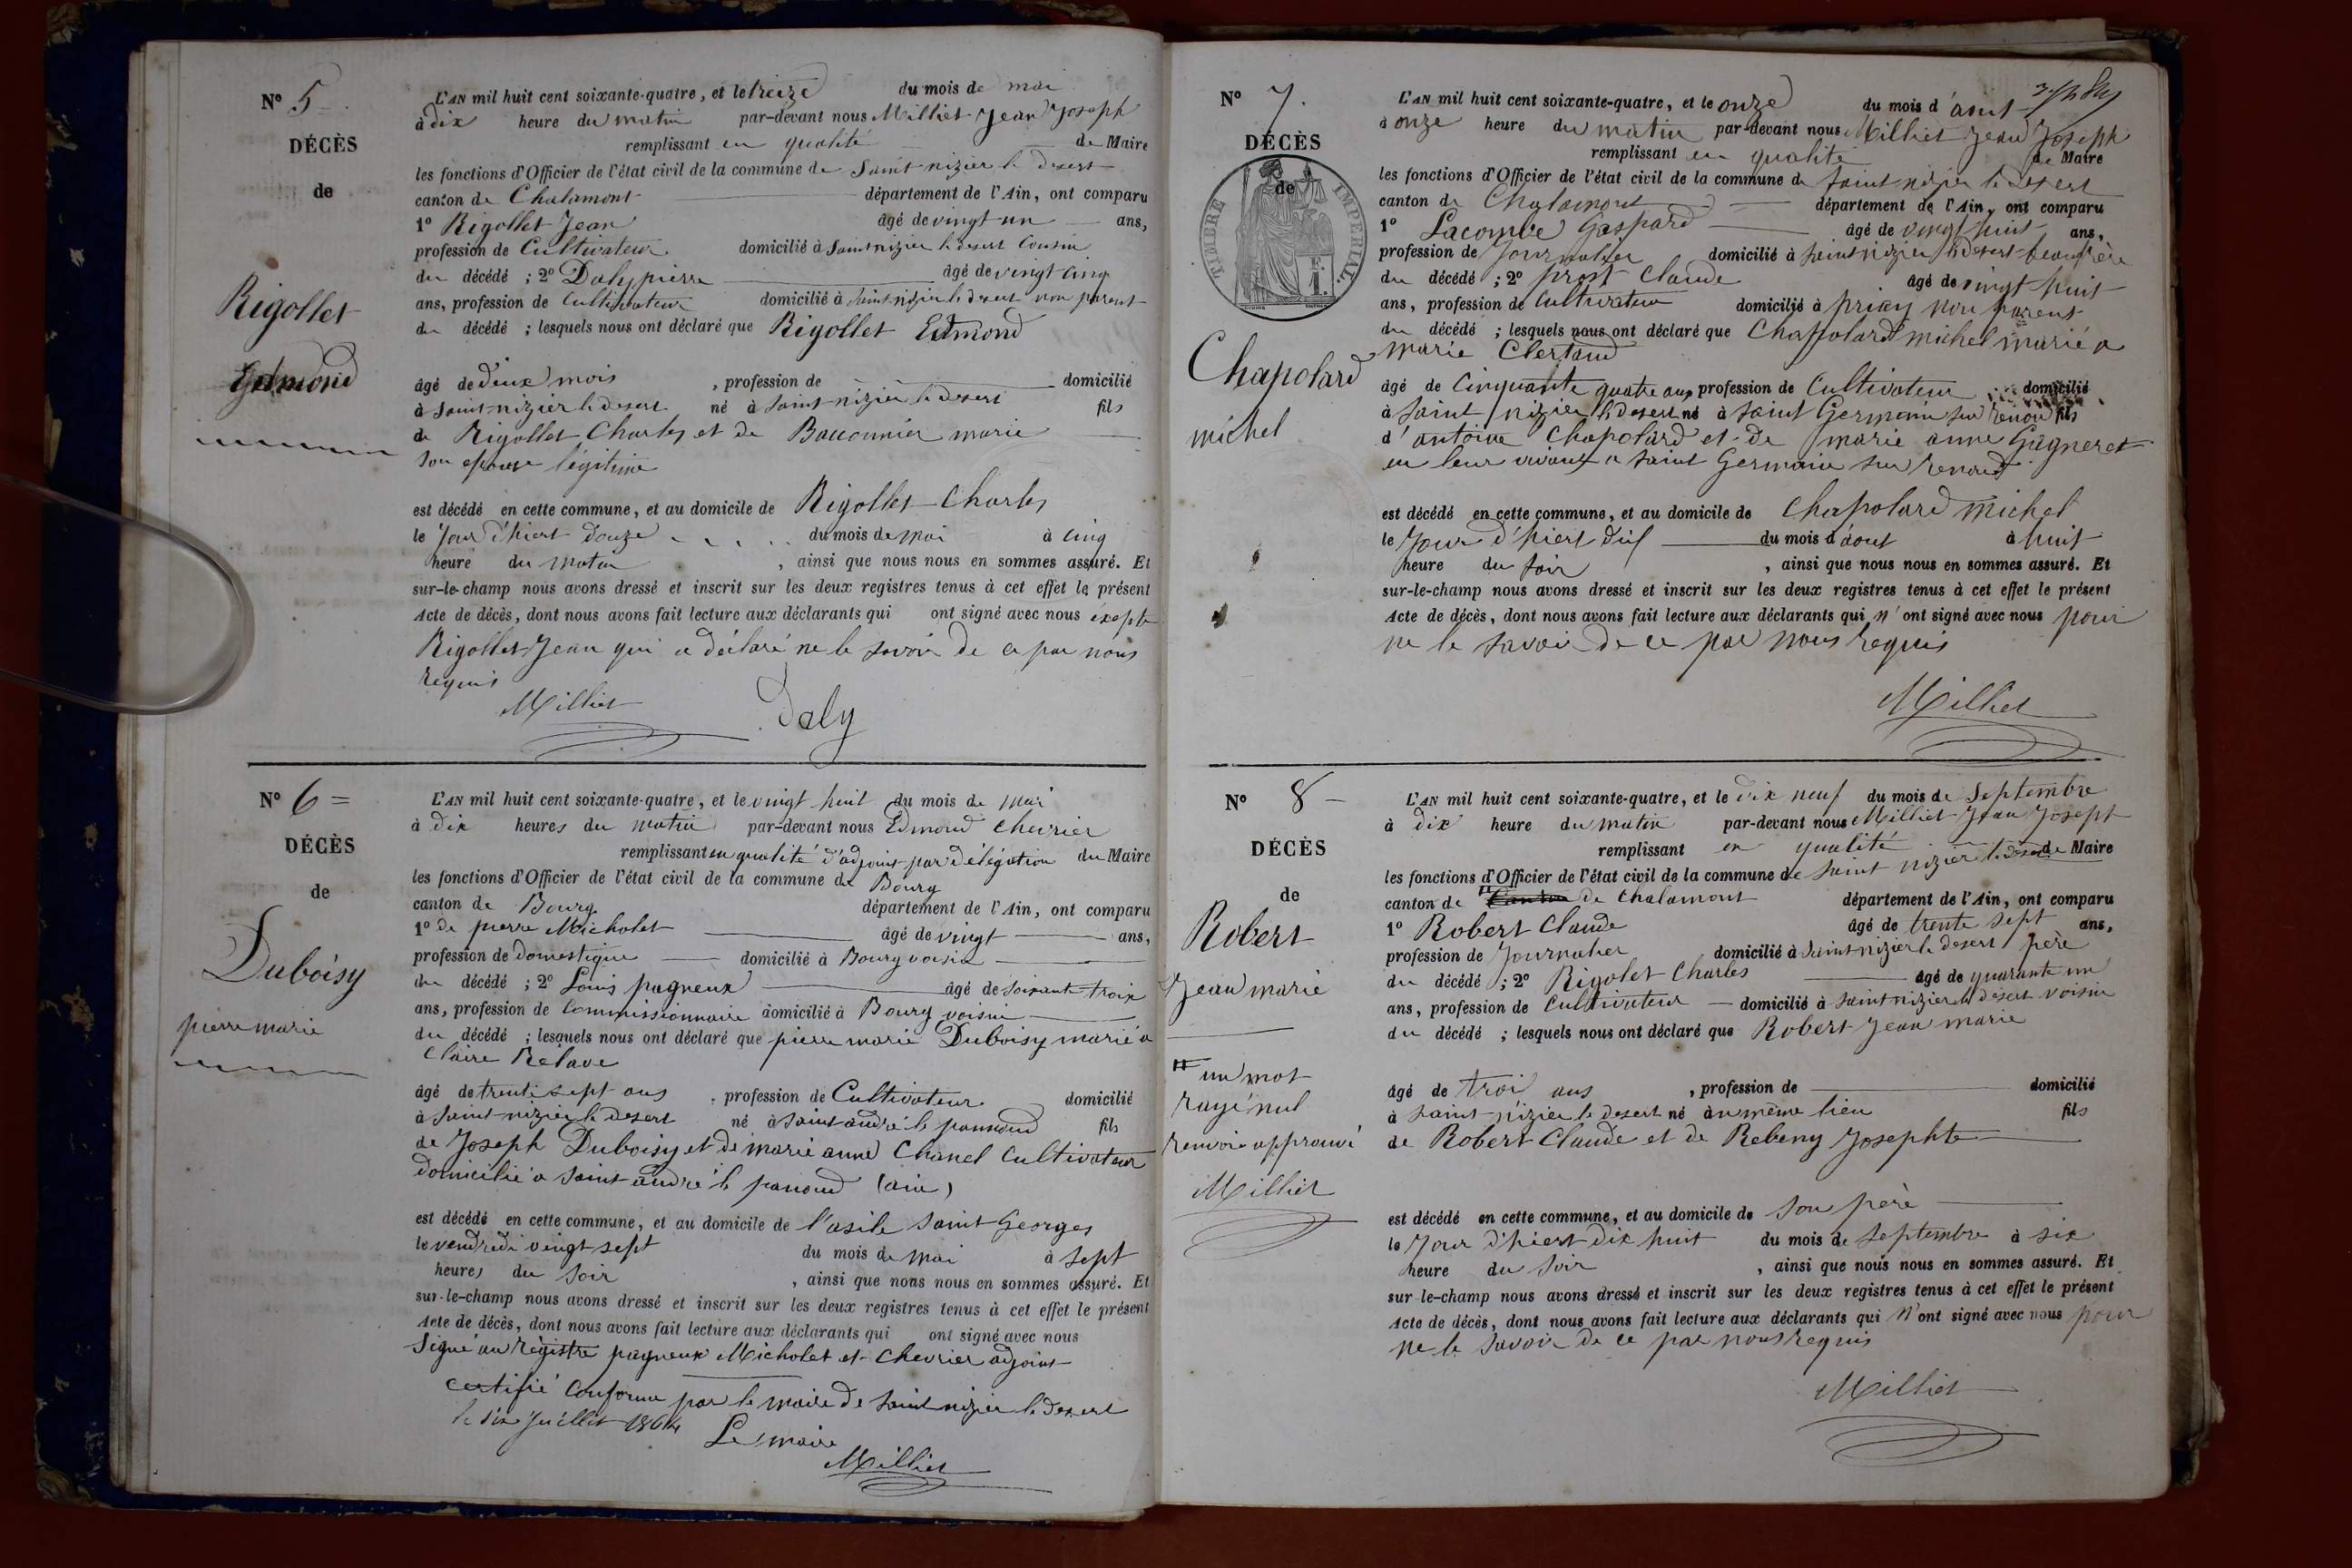 N° 5
DÉCÈS
de
Rigollet
Edmond
L'AN mil huit cent soixante-quatre, et le treize du mois de mai
à dix heure du matin par-devant nous Milliet Jean Joseph
remplissant en qualité de Maire
les fonctions d'Officier de l'état civil de la commune de Saint nizier le desert
canton de Chalamont département de l'Ain, ont comparu
1° Rigollet Jean âgé de vingt un ans,
profession de Cultivateur domicilié à Saint nizier le desert Cousin
du décédé ; 2° Daly pierre âgé de vingt cinq
ans, profession de Cultivateur domicilié à Saint nizier le desert non parent
du décédé ; lesquels nous ont déclaré que Rigollet Edmond
âgé de deux mois , profession de domicilié
à Saint nizier le desert né à Saint nizier le desert fils
de Rigollet Charles et de Bouconnier marie
son epouse légitime
est décédé en cette commune, et au domicile de Rigollet Charles
le Jour d'hiert douze du mois de mai à cinq
heure du matin , ainsi que nous nous en sommes assuré. Et
sur-le-champ nous avons dressé et inscrit sur les deux registres tenus à cet effet le présent
Acte de décès, dont nous avons fait lecture aux déclarants qui ont signé avec nous éxepte
Rigollet Jean qui a déclaré ne le savoir de ce par nous
requis
Milliet Daly
N° 6 =
DÉCÈS
de
Duboisy
pierre marie
L'AN mil huit cent soixante-quatre, et le vingt huit du mois de mai
à dix heures du matin par-devant nous Edmond Chevrier
remplissant en qualité d'adjoint par délégation du Maire
les fonctions d'Officier de l'état civil de la commune de Bourg
canton de Bourg département de l'Ain, ont comparu
1° de pierre Micholet âgé de vingt ans,
profession de domestique domicilié à Bourg voisin
du décédé ; 2° Louis pagneux âgé de soixante troix
ans, profession de Commissionnaire domicilié à Bourg voisin
du décédé ; lesquels nous ont déclaré que pierre marie Duboisy marié a
Claire Relave
âgé de trente sept ans , profession de Cultivateur domicilié
à Saint nizier le desert né à Saint andré le pannoud fils
de Joseph Duboisy et de marie anne Chanel Cultivateur
domicilié a Saint andré le panoud (ain)
est décédé en cette commune, et au domicile de l'asile Saint Georges
le vendredi vingt sept du mois de mai à sept
heures du soir , ainsi que nous nous en sommes assuré. Et
sur-le-champ nous avons dressé et inscrit sur les deux registres tenus à cet effet le présent
Acte de décès, dont nous avons fait lecture aux déclarants qui ont signé avec nous
Signé au régistre pagneux Micholet et Chevrier adjoint
certifié Conforme par le maire de Saint nizier le desert
le dix Juillet 1864
Le maire
Milliet
N° 7.
DÉCÈS
de
TIMBRE IMPÉRIAL
Chapolard
michel
L'AN mil huit cent soixante-quatre, et le onze du mois d'aout
à onze heure du matin par-devant nous Milliet Jean Joseph
remplissant en qualité de Maire
les fonctions d'Officier de l'état civil de la commune de Saint nizier le desert
canton de Chalamont département de l'Ain, ont comparu
1° Lacombe Gaspard âgé de vingt huit ans,
profession de Journalier domicilié à Saint nizier le desert beau frère
du décédé ; 2° prost Claude âgé de vingt huit
ans, profession de Cultivateur domicilié à priay non parent
du décédé ; lesquels nous ont déclaré que Chapolard michel marié a
marie Clertand
âgé de Cinquante quatre ans profession de Cultivateur domicilié
à Saint nizier le desert né à Saint Germain sur renon fils
d'antoine Chapolard et de marie anne Gagneret
en leur vivant a Saint Germain sur renond
est décédé en cette commune, et au domicile de Chapolard michel
le Jour d'hiert dix du mois d'aout à huit
heure du soir , ainsi que nous nous en sommes assuré. Et
sur-le-champ nous avons dressé et inscrit sur les deux registres tenus à cet effet le présent
Acte de décès, dont nous avons fait lecture aux déclarants qui n'ont signé avec nous pour
ne le savoir de ce par nous requis
Milliet
N° 8
DÉCÈS
de
Robert
Jean marie
un mot
rayé nul
renvoi approuvé
Milliet
L'AN mil huit cent soixante-quatre, et le dix neuf du mois de Septembre
à dix heure du matin par-devant nous Milliet Jean Joseph
remplissant en qualité de Maire
les fonctions d'Officier de l'état civil de la commune de Saint nizier le desert
canton de Canton de Chalamont département de l'Ain, ont comparu
1° Robert Claude âgé de trente sept ans,
profession de Journalier domicilié à Saint nizier le desert père
du décédé ; 2° Rigolet Charles âgé de quarante un
ans, profession de Cultivateur domicilié à Saint nizier le desert voisin
du décédé ; lesquels nous ont déclaré que Robert Jean marie
âgé de troi ans , profession de domicilié
à Saint nizier le desert né au même lieu fils
de Robert Claude et de Rebeny Josephte
est décédé en cette commune, et au domicile de son père
le Jour d'hiert dix huit du mois de Septembre à six
heure du soir , ainsi que nous nous en sommes assuré. Et
sur-le-champ nous avons dressé et inscrit sur les deux registres tenus à cet effet le présent
Acte de décès, dont nous avons fait lecture aux déclarants qui n'ont signé avec nous pour
ne le savoir de ce par nous requis
Milliet